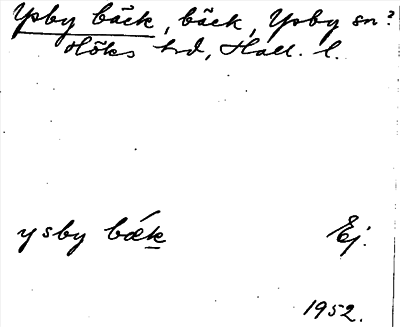 Ysby bäck, bäck, Ysby sn?
Höks hd, Hall. l.
ysby bǽk Ej.
1952.